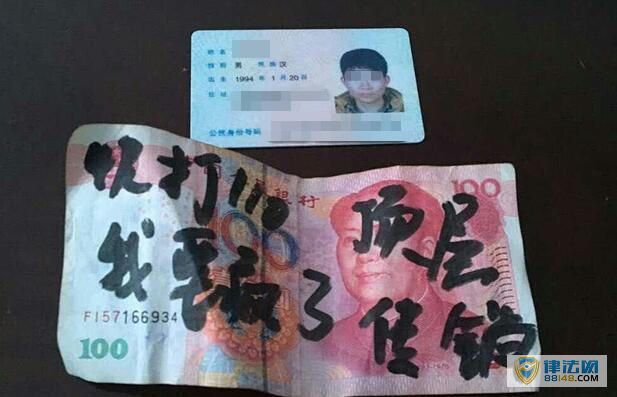 姓名
性别 男 民族 汉
出生 1994 年 1 月 20 日
住址
公民身份号码
快打110 顶层
我要疯了 传销
银行
100
FI57166934
100
律法网
88148.com